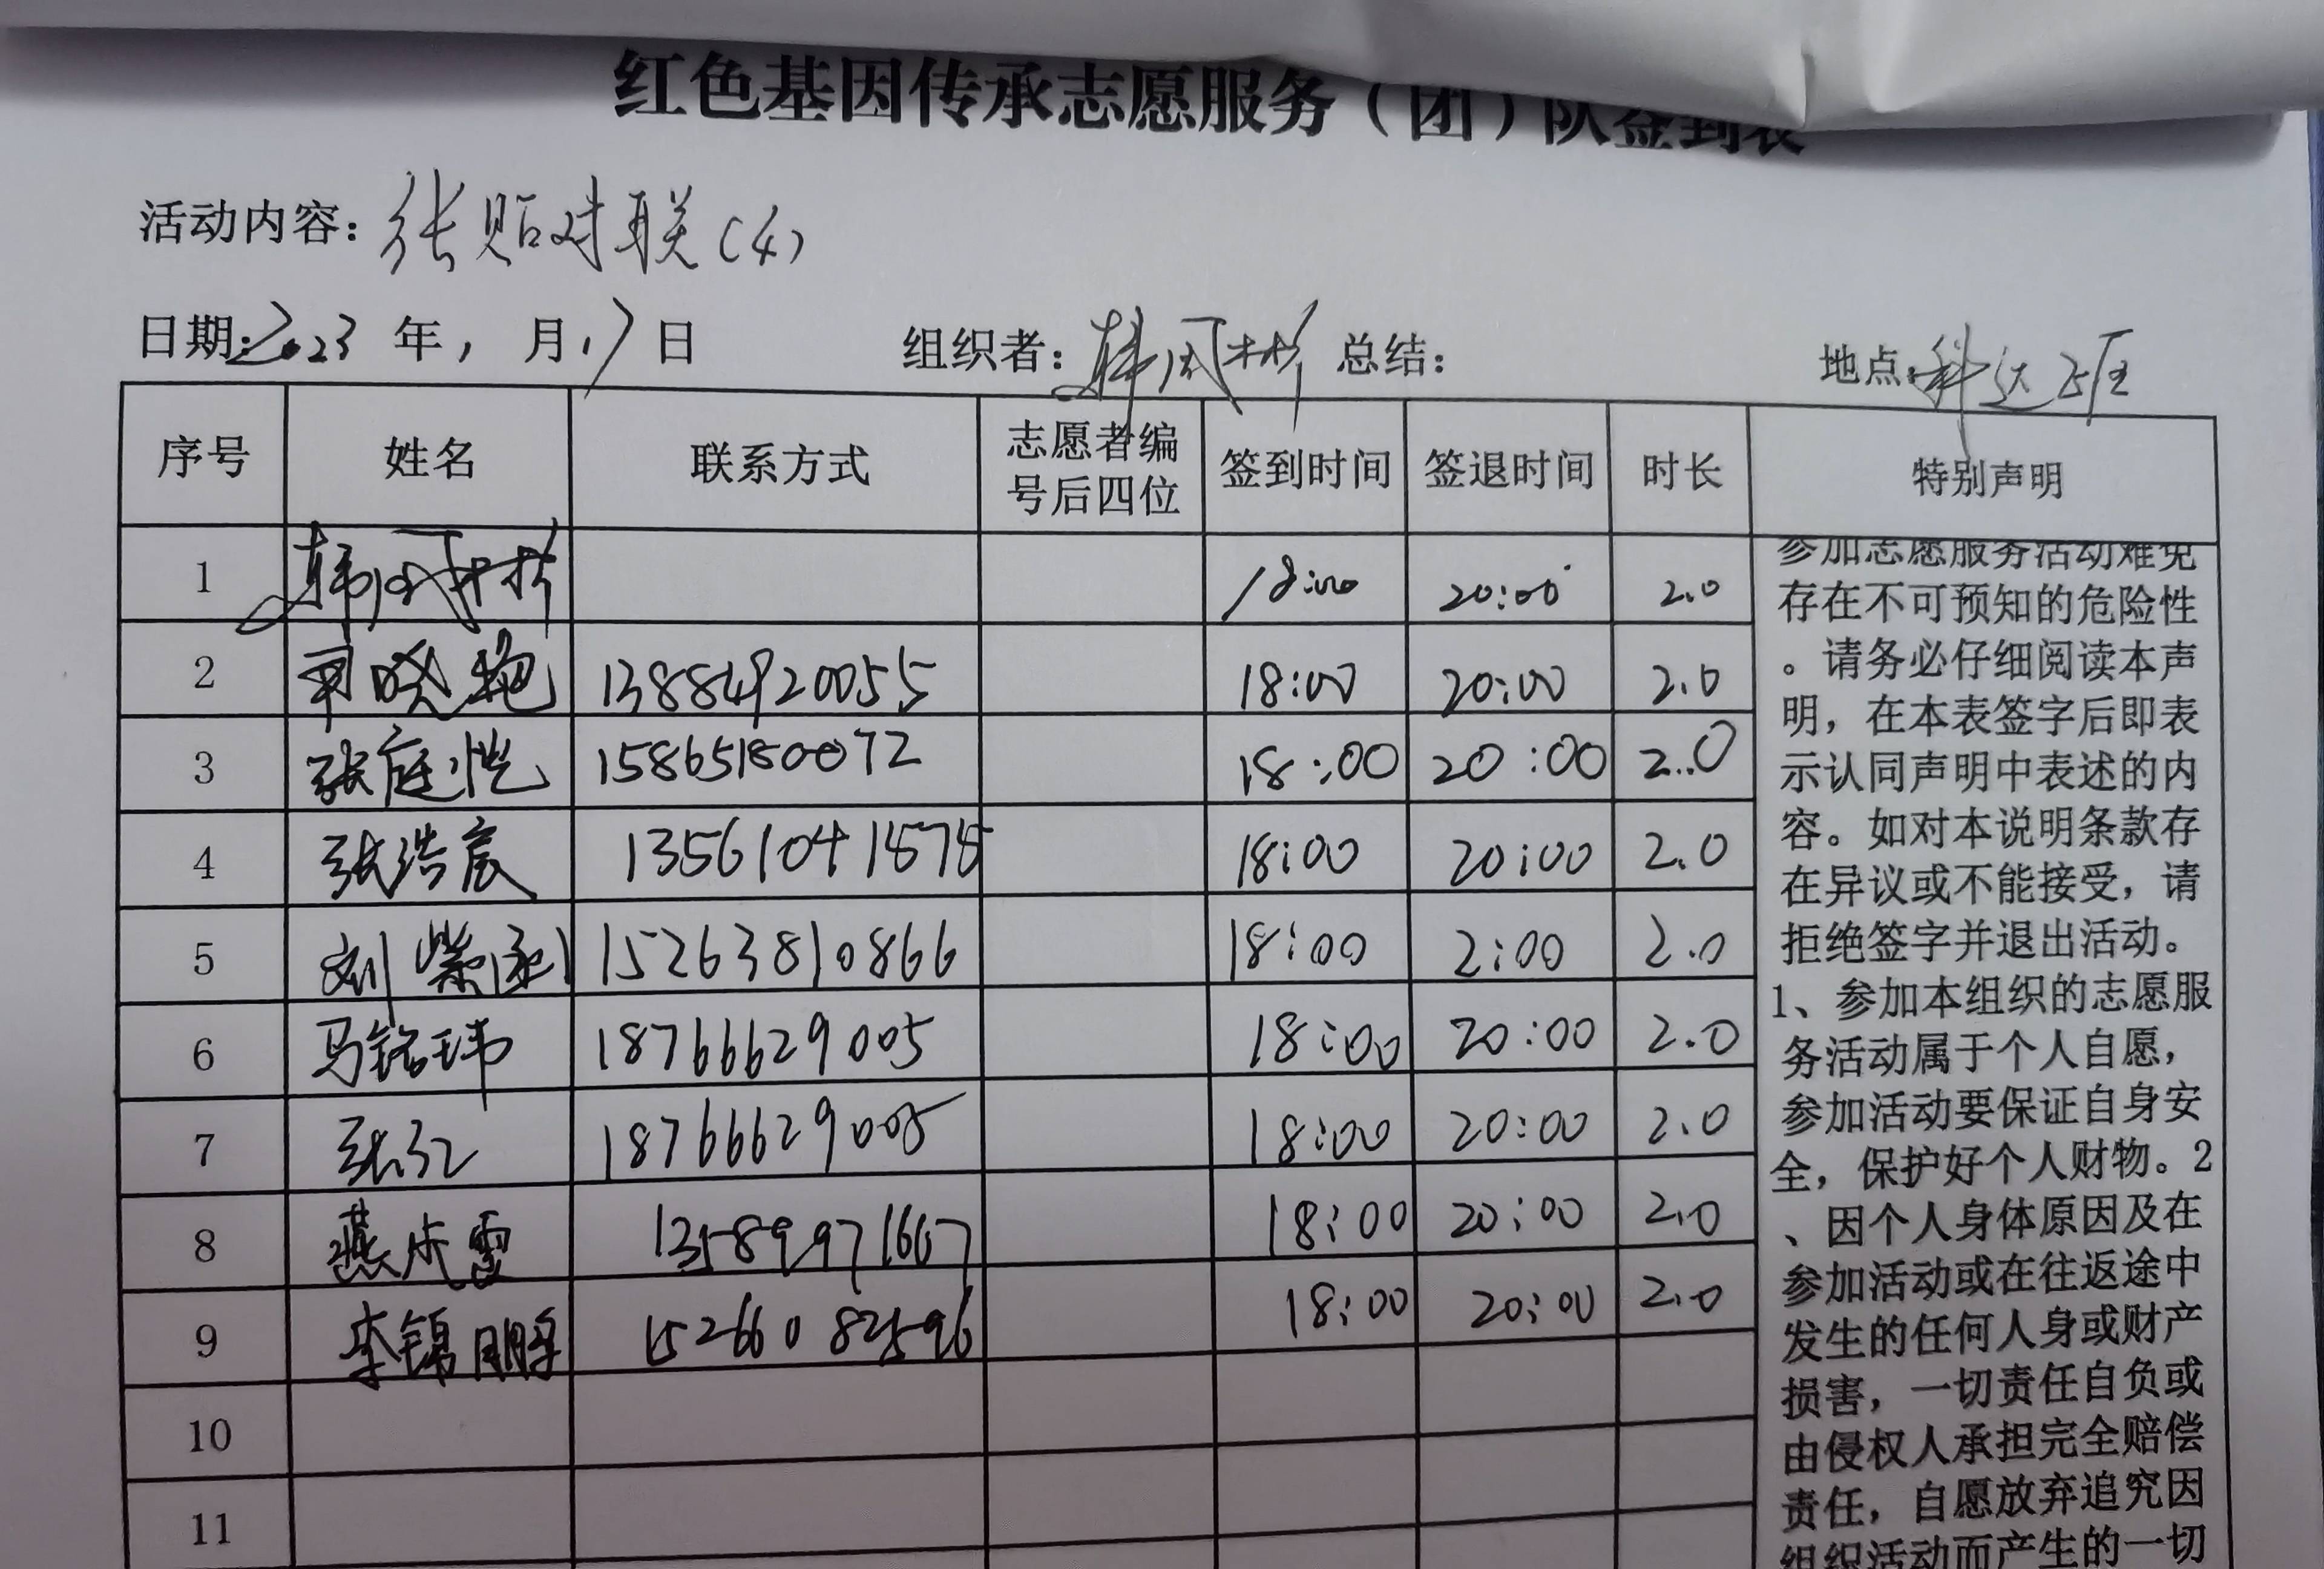 红色基因传承志愿服务（团）队签到表
活动内容：张贴对联（4）
日期：2023 年 1 月 17 日 组织者：韩凤彬 总结： 地点：科达
序号 姓名 联系方式 志愿者编号后四位 签到时间 签退时间 时长 特别声明
1 韩凤彬 18:00 20:00 2.0
2 司晓艳 13884920055 18:00 20:00 2.0
3 张庭恺 15865180072 18:00 20:00 2.0
4 张浩宸 18:00 20:00 2.0
5 刘紫涵 15263810866 18:00 2:00 2.0
6 马铭玮 18766629005 18:00 20:00 2.0
7 张红 18766629005 18:00 20:00 2.0
8 燕 雪 13589971667 18:00 20:00 2.0
9 李锦鹏 15266082596 18:00 20:00 2.0
10
11
参加志愿服务活动难免
存在不可预知的危险性
。请务必仔细阅读本声
明，在本表签字后即表
示认同声明中表述的内
容。如对本说明条款存
在异议或不能接受，请
拒绝签字并退出活动。
1、参加本组织的志愿服
务活动属于个人自愿，
参加活动要保证自身安
全，保护好个人财物。2
、因个人身体原因及在
参加活动或在往返途中
发生的任何人身或财产
损害，一切责任自负或
由侵权人承担完全赔偿
责任，自愿放弃追究因
组织活动而产生的一切